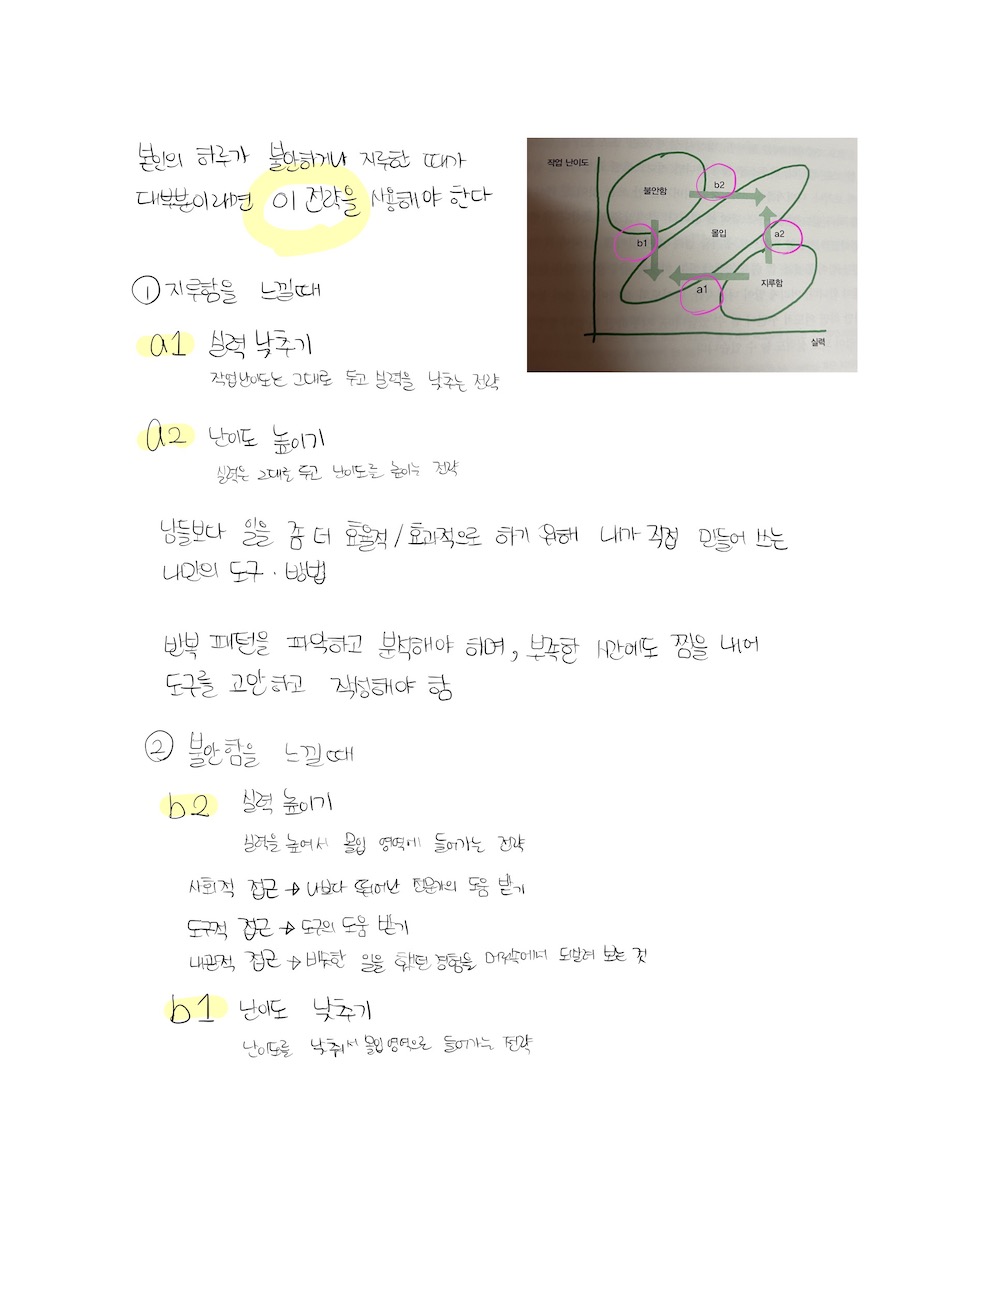 본인의 하루가 불안하거나 지루한 때가
대부분이라면 이 전략을 사용해야 한다
작업 난이도
불안함
b2
몰입
b1
a2
a1
지루함
실력
① 지루함을 느낄때
a1 실력 낮추기
작업난이도는 그대로 두고 실력을 낮추는 전략
a2 난이도 높이기
실력은 그대로 두고 난이도를 높이는 전략
남들보다 일을 좀 더 효율적/효과적으로 하기 위해 내가 직접 만들어 쓰는
나만의 도구·방법
반복 패턴을 파악하고 분석해야 하며, 부족한 시간에도 짬을 내어
도구를 고안하고 작성해야 함
② 불안함을 느낄때
b2 실력 높이기
실력을 높여서 몰입 영역에 들어가는 전략
사회적 접근 → 나보다 뛰어난 전문가의 도움 받기
도구적 접근 → 도구의 도움 받기
내관적 접근 → 비슷한 일을 했던 경험을 머릿속에서 되살려 보는 것
b1 난이도 낮추기
난이도를 낮춰서 몰입영역으로 들어가는 전략